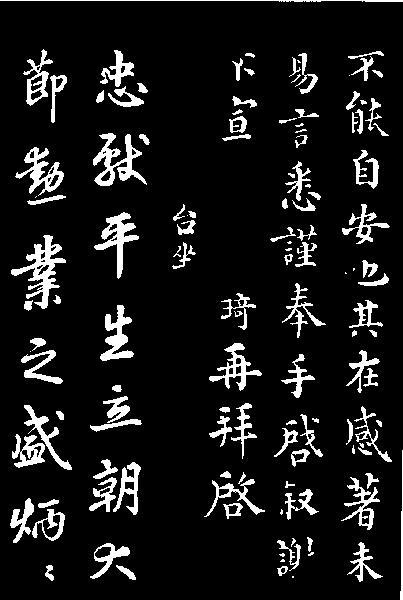 不能自安也其在感著未
易言悉謹奉手啓叙謝
不宣　琦再拜啓
台坐
忠獻平生立朝大
節勲業之盛炳〻